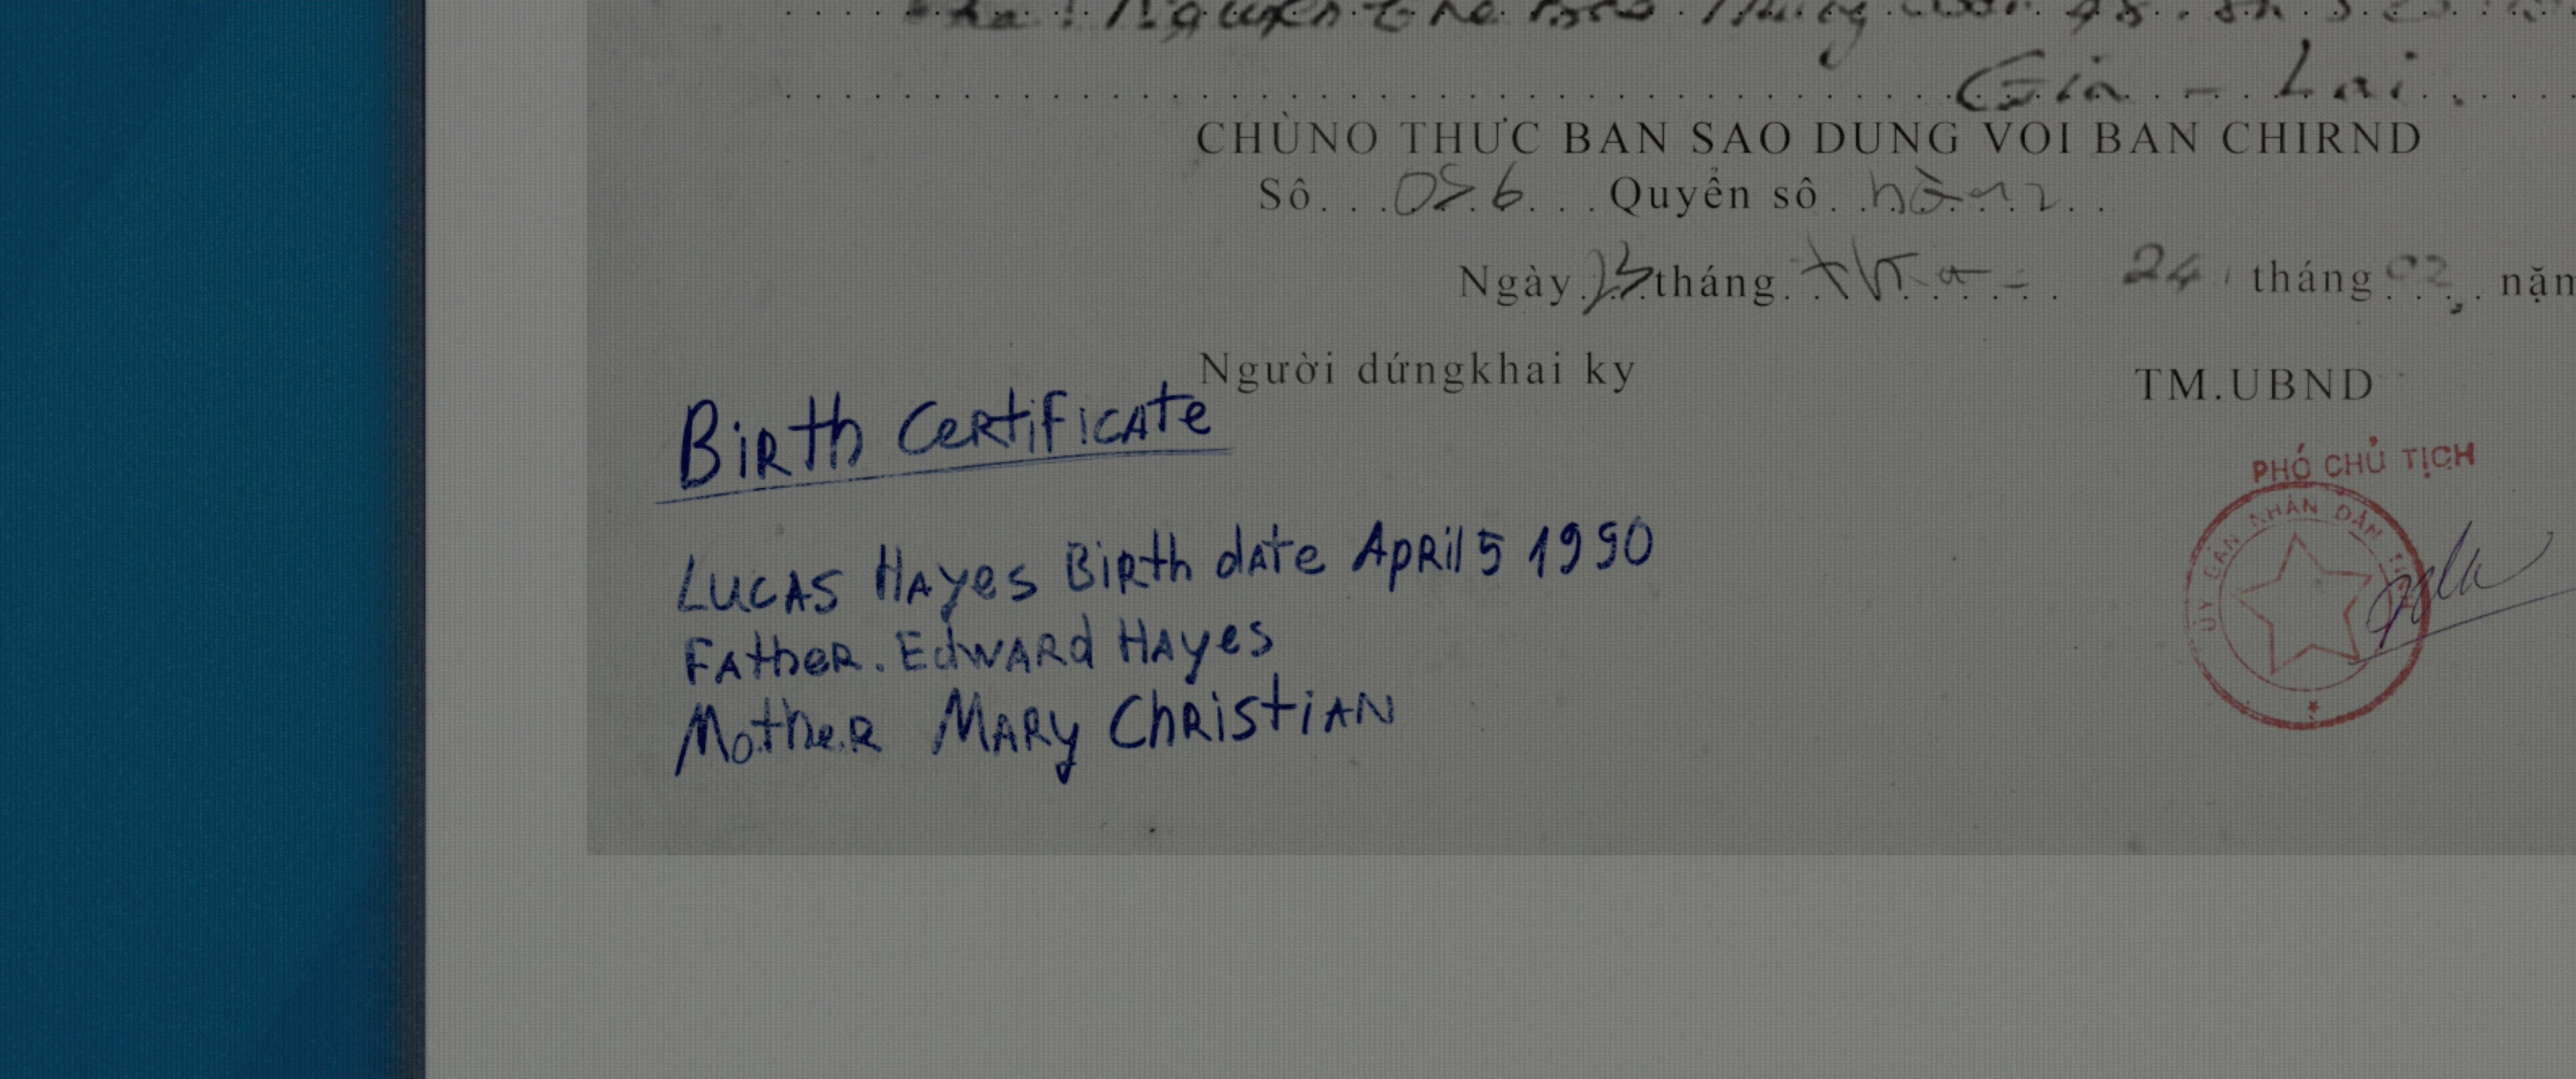 Gia - Lai.
CHÙNO THƯC BAN SAO DUNG VOI BAN CHIRND
Sô...056...Quyển sô
Ngày 23 tháng 24 tháng 02 năm
Người dứngkhai ky
TM.UBND
PHÓ CHỦ TỊCH
NHÂN DÂN
Birth Certificate
Lucas Hayes Birth date April 5 1990
Father. Edward Hayes
Mother Mary Christian